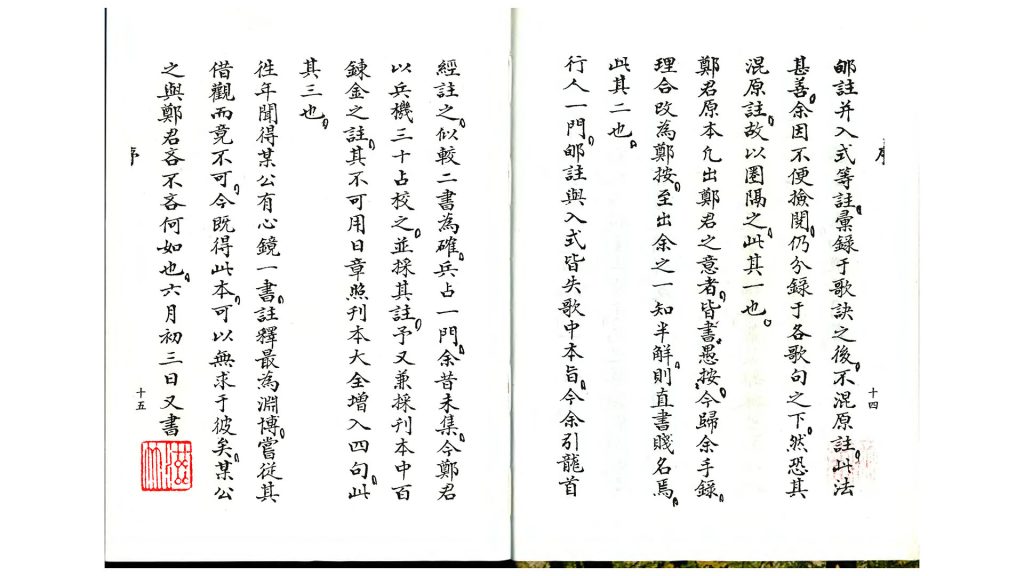 序
郇註并入式等註。彙録于歌訣之後。不混原註。此法
甚善。余因不便撿閱。仍分録于各歌句之下。然恐其
混原註。故以圏隔之。此其一也。
鄭君原本凢出鄭君之意者。皆書愚按。今歸余手録。
理合改為鄭按。至出余之一知半解。則直書賤名焉。
此其二也。
行人一門。郇註與入式皆失歌中本旨。今余引龍首
十四
經註之。似較二書為確。兵占一門。余昔未集。今鄭君
以兵機三十占校之。並採其註。予又兼採刊本中百
鍊金之註。其不可用日章照刊本大全增入四句。此
其三也。
徃年聞得某公有心鏡一書。註釋最為淵博。嘗從其
借觀而竟不可。今既得此本。可以無求于彼矣。某公
之與鄭君吝不吝何如也。六月初三日又書
序
十五